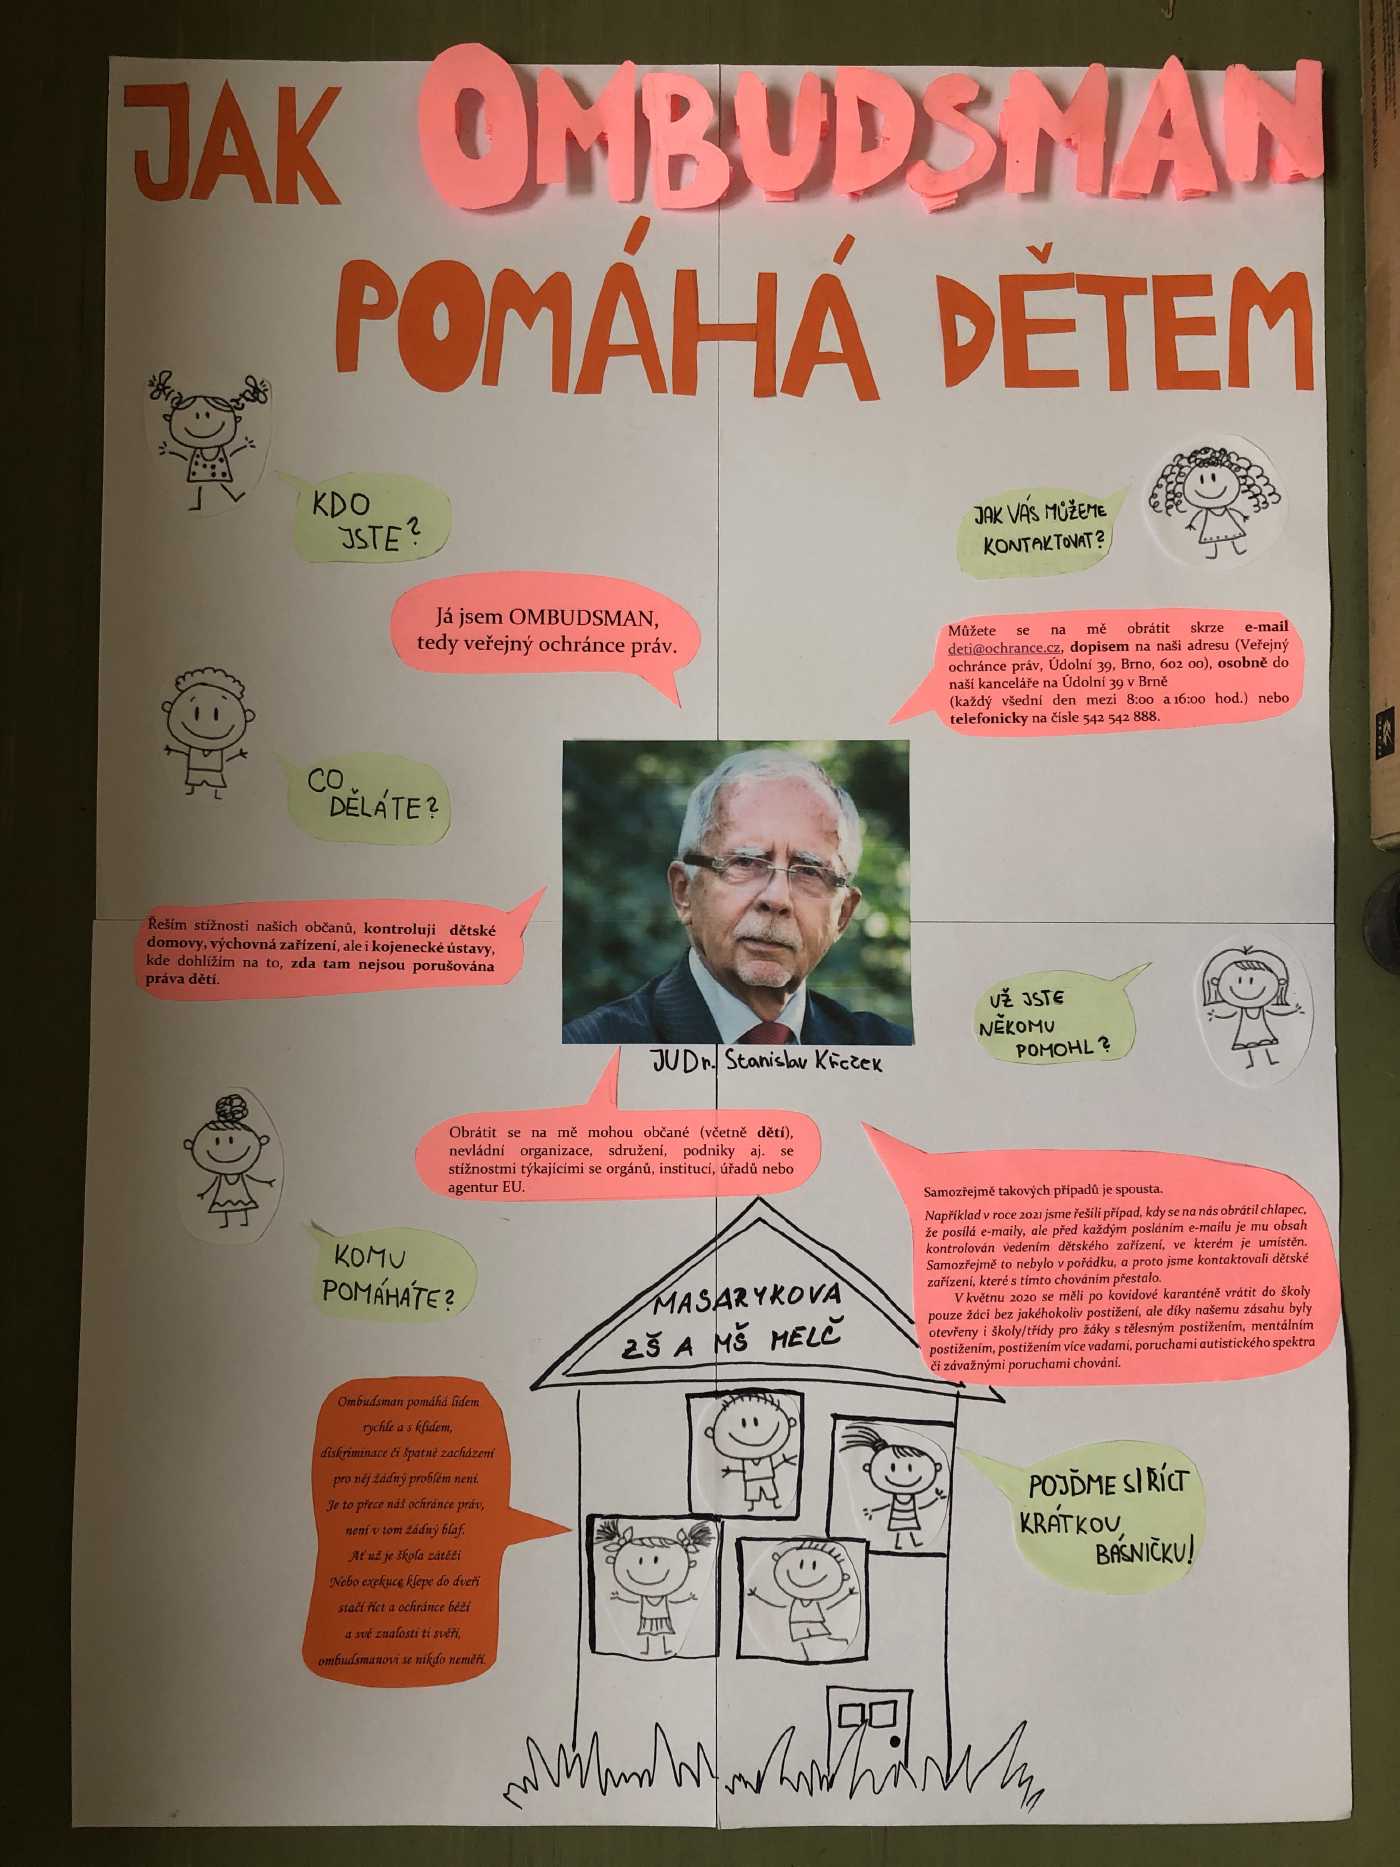 JAK OMBUDSMAN
POMÁHÁ DĚTEM
KDO
JSTE?
Já jsem OMBUDSMAN,
tedy veřejný ochránce práv.
JAK VÁS MŮŽEME
KONTAKTOVAT?
Můžete se na mě obrátit skrze e-mail
deti@ochrance.cz, dopisem na naši adresu (Veřejný
ochránce práv, Údolní 39, Brno, 602 00), osobně do
naší kanceláře na Údolní 39 v Brně
(každý všední den mezi 8:00 a 16:00 hod.) nebo
telefonicky na čísle 542 542 888.
CO
DĚLÁTE?
Řeším stížnosti našich občanů, kontroluji dětské
domovy, výchovná zařízení, ale i kojenecké ústavy,
kde dohlížím na to, zda tam nejsou porušována
práva dětí.
JUDr. Stanislav Křeček
UŽ JSTE
NĚKOMU
POMOHL?
Obrátit se na mě mohou občané (včetně dětí),
nevládní organizace, sdružení, podniky aj. se
stížnostmi týkajícími se orgánů, institucí, úřadů nebo
agentur EU.
KOMU
POMÁHÁTE?
Samozřejmě takových případů je spousta.
Například v roce 2021 jsme řešili případ, kdy se na nás obrátil chlapec,
že posílá e-maily, ale před každým posláním e-mailu je mu obsah
kontrolován vedením dětského zařízení, ve kterém je umístěn.
Samozřejmě to nebylo v pořádku, a proto jsme kontaktovali dětské
zařízení, které s tímto chováním přestalo.
V květnu 2020 se měli po kovidové karanténě vrátit do školy
pouze žáci bez jakéhokoliv postižení, ale díky našemu zásahu byly
otevřeny i školy/třídy pro žáky s tělesným postižením, mentálním
postižením, postižením více vadami, poruchami autistického spektra
či závažnými poruchami chování.
MASARYKOVA
ZŠ A MŠ MELČ
Ombudsman pomáhá lidem
rychle a s klidem,
diskriminace či špatné zacházení
pro něj žádný problém není.
Je to přece náš ochránce práv,
není v tom žádný blaf.
Ať už je škola zátěží
Nebo exekuce klepe do dveří
stačí říct a ochránce běží
a své znalosti ti svěří,
ombudsmanovi se nikdo neměří.
POJĎME SI ŘÍCT
KRÁTKOU
BÁSNIČKU!